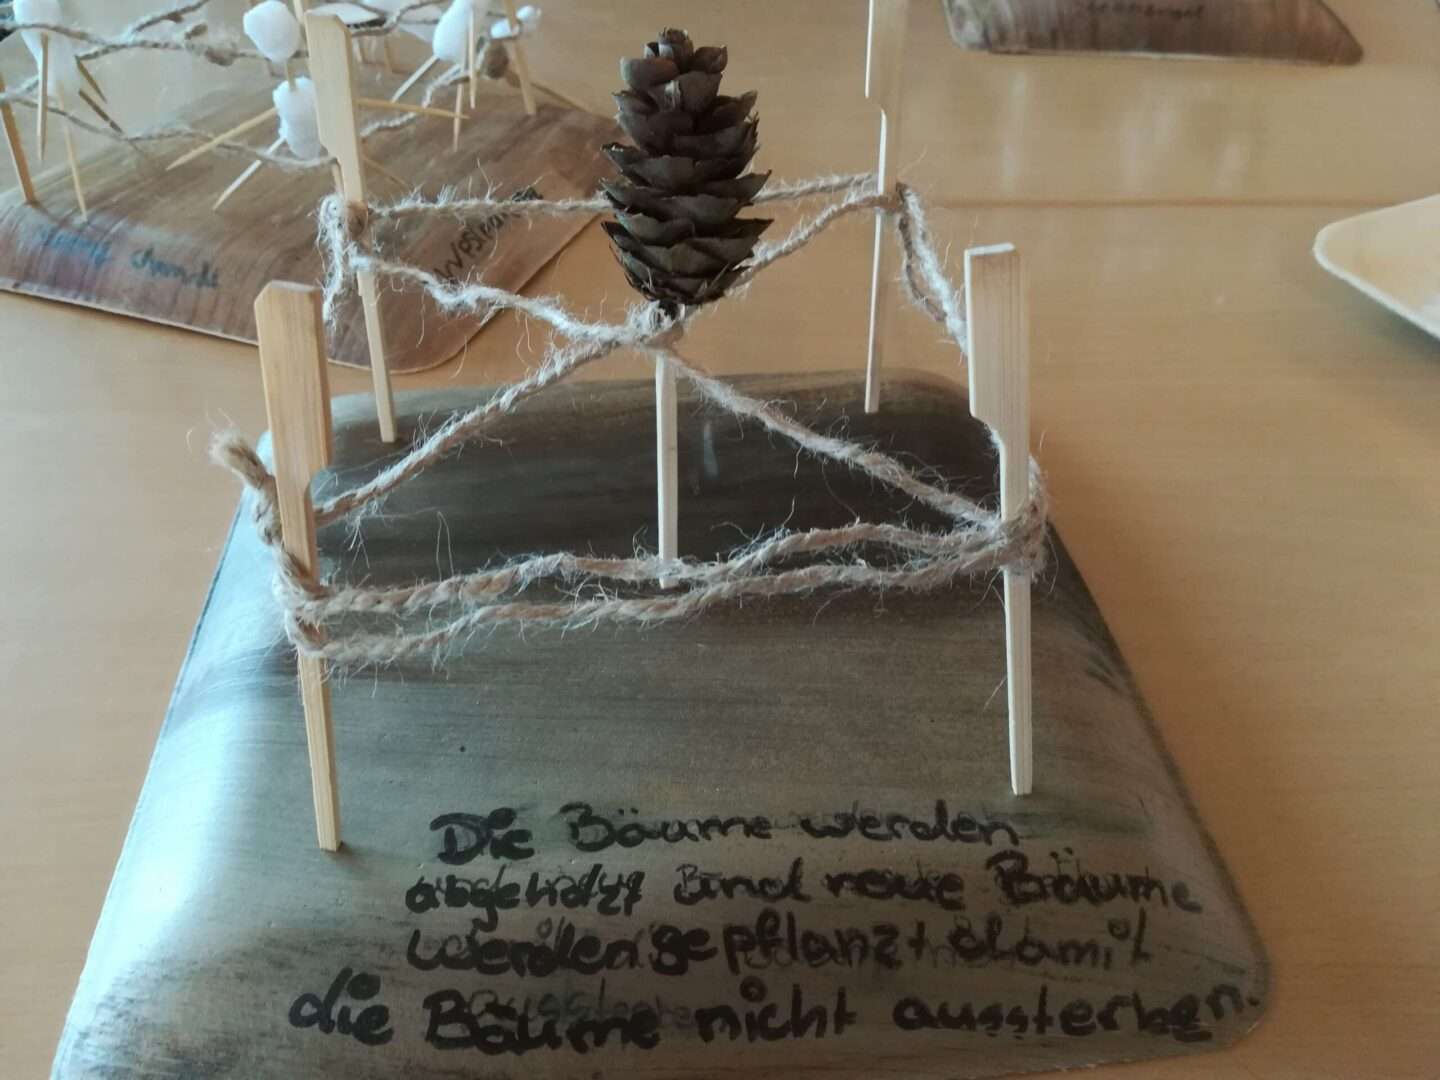 Die Bäume werden
abgeholzt und neue Bäume
werden gepflanzt damit
die Bäume nicht aussterben.